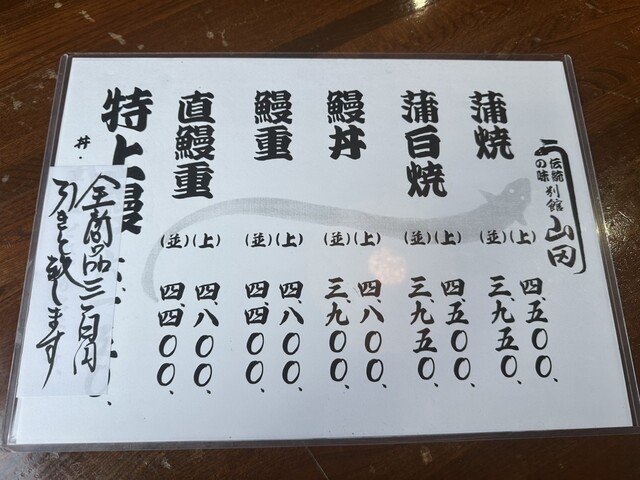 伝統
の味
別館
山田
蒲焼
(上) 四、五〇〇、
(並) 三、九五〇、
蒲白焼
(上) 四、五〇〇、
(並) 三、九五〇、
鰻丼
(上) 四、八〇〇、
(並) 三、九〇〇、
鰻重
(上) 四、八〇〇、
(並) 四、四〇〇、
直鰻重
(上) 四、八〇〇、
(並) 四、四〇〇、
特上鰻
丼・
全商品三百円
引きと致します